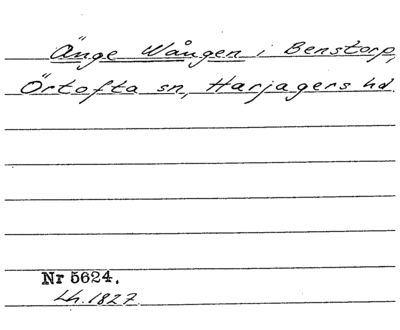 Änge Wången i Benstorp,
Örtofta sn, Harjagers hd.
Nr 5624.
Lh. 1827